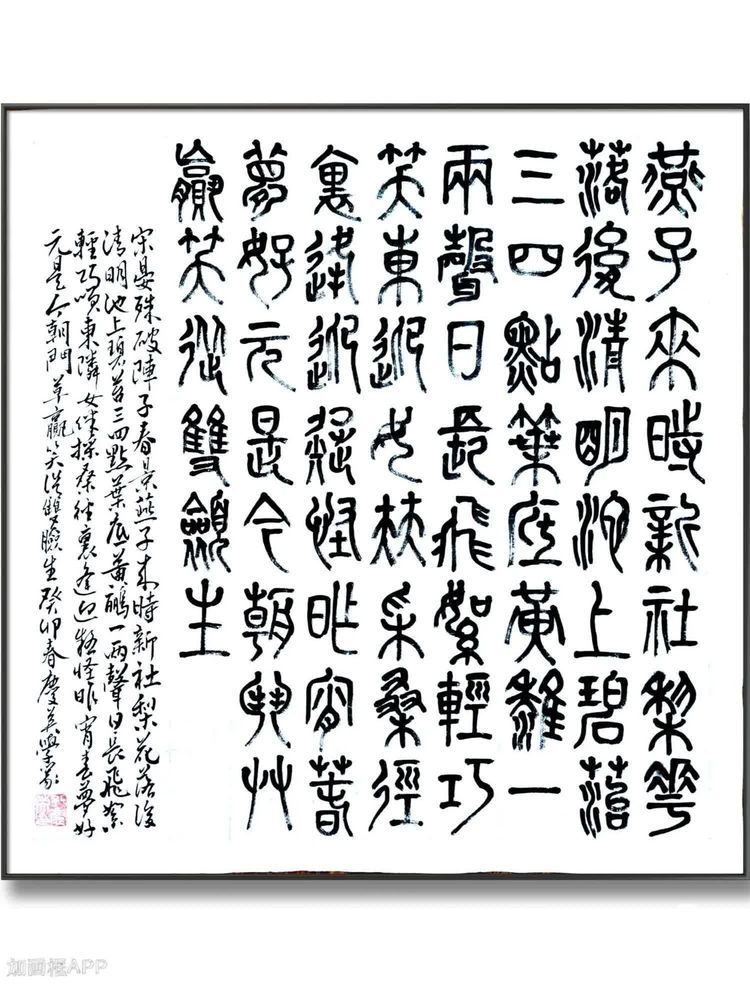 燕子來時新社梨花
落後清明池上碧苔
三四點葉底黃鸝一
兩聲日長飛絮輕巧
笑東鄰女伴采桑徑
裏逢迎疑怪昨宵春
夢好元是今朝鬥草
贏笑從雙臉生
宋晏殊破陣子春景燕子來時新社梨花落後
清明池上碧苔三四點葉底黃鸝一兩聲日長飛絮
輕巧笑東隣女伴採桑徑裏逢迎疑怪昨宵春夢好
元是今朝鬥草贏笑從雙臉生癸卯春慶英學篆
如画框APP